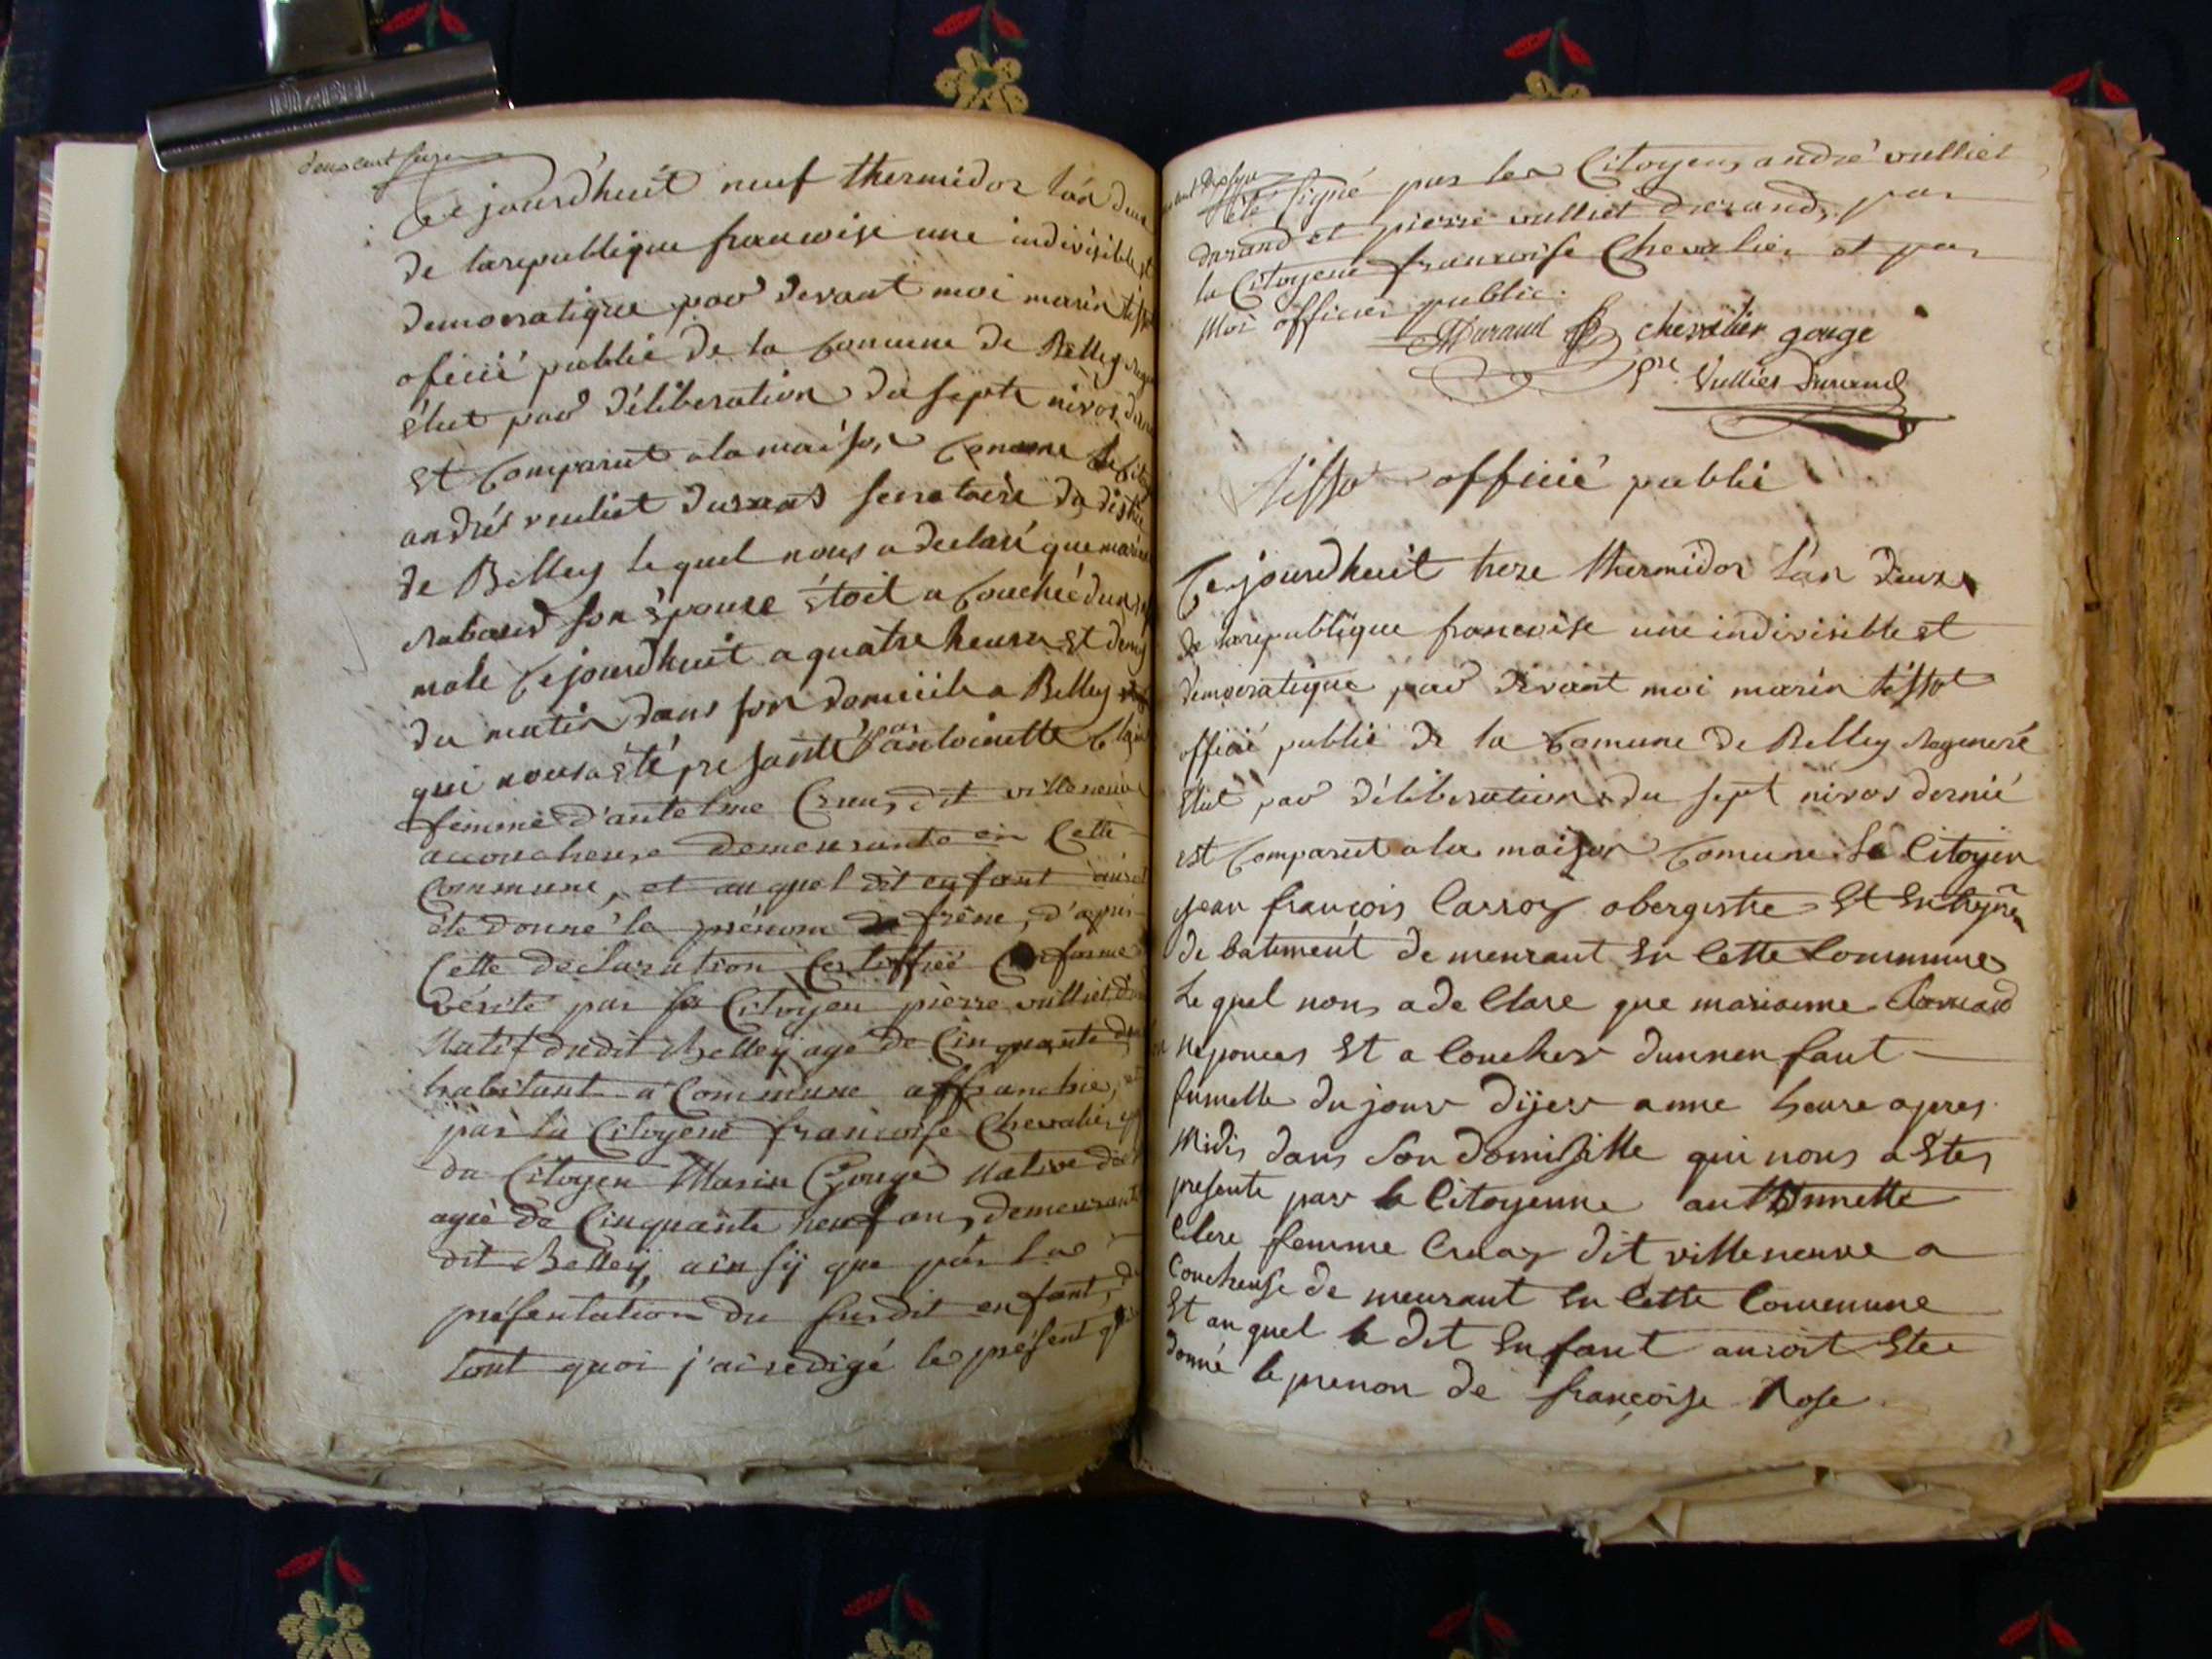 deux cent seize
Ce jourdhuit neuf thermidor l'an deux
de larepublique francoise une indivisible et
democratique pard devant moi marin tisso
oficié public de la Comune de Belley
élut pard déliberation du sept nivos
et Comparut alamaison Comune le
andré vuliet durand secretaire du distric
de Belley lequel nous a declaré que
Rabaud son épouse étoit acouchée d'un
male Cejourdhuit a quatre heures et demy
du matin dans son domicile a Belley
qui nous a été presanté par antoinette
femme d'antelme Cruaz dit villeneuve
accoucheuse demeurante en Cette
Commune, et auquel dit enfant auroit
été donné le prénom de frêne, d'après
Cette declaration Certiffiée Conforme
vérité par le Citoyen pierre vulliet
Natif dudit Belley agé de Cinquante
habitant a Commune affranchie,
par la Citoyene francoise Chevalier
du Citoyen Marin Gouge Native
agée de Cinquante neuf ans, demeurante
dit Belley, ainsy que par la
présentation du susdit enfant,
tout quoi j'ai redigé le présent
été signé par les Citoyens andré vulliet
durand et pierre vulliet durand, par
la Citoyene francoise Chevalier et par
Moi officier public.
Durand chevalier gouge
pre Vulliet Durand
tisso officié public
Ce jourdhuit treze thermidor l'an deux
de larepublique francoise une indivisible et
democratique pard devant moi marin tissot
officié public de la Comune de Belley Regeneré
élut pard déliberation du sept nivos dernié
est Comparut ala maison Comune Le Citoyen
jean françois Carroz obergistre Et Entreprneur
de batiment demeurant En Cette Commune
Le quel nous a de Clare que marianne
Epouces Et a Coucher dunnen fant
fumelle du jour dijer a une heure apres
Midis dans Son domisille qui nous a Etes
presente par la Citoyenne anthoinette
Clere femme Cruaz dit villeneuve a
Coucheuse de meurant En Cette Commune
Et au quel le dit Enfant auroit Etee
donné le prenon de françoise Rose